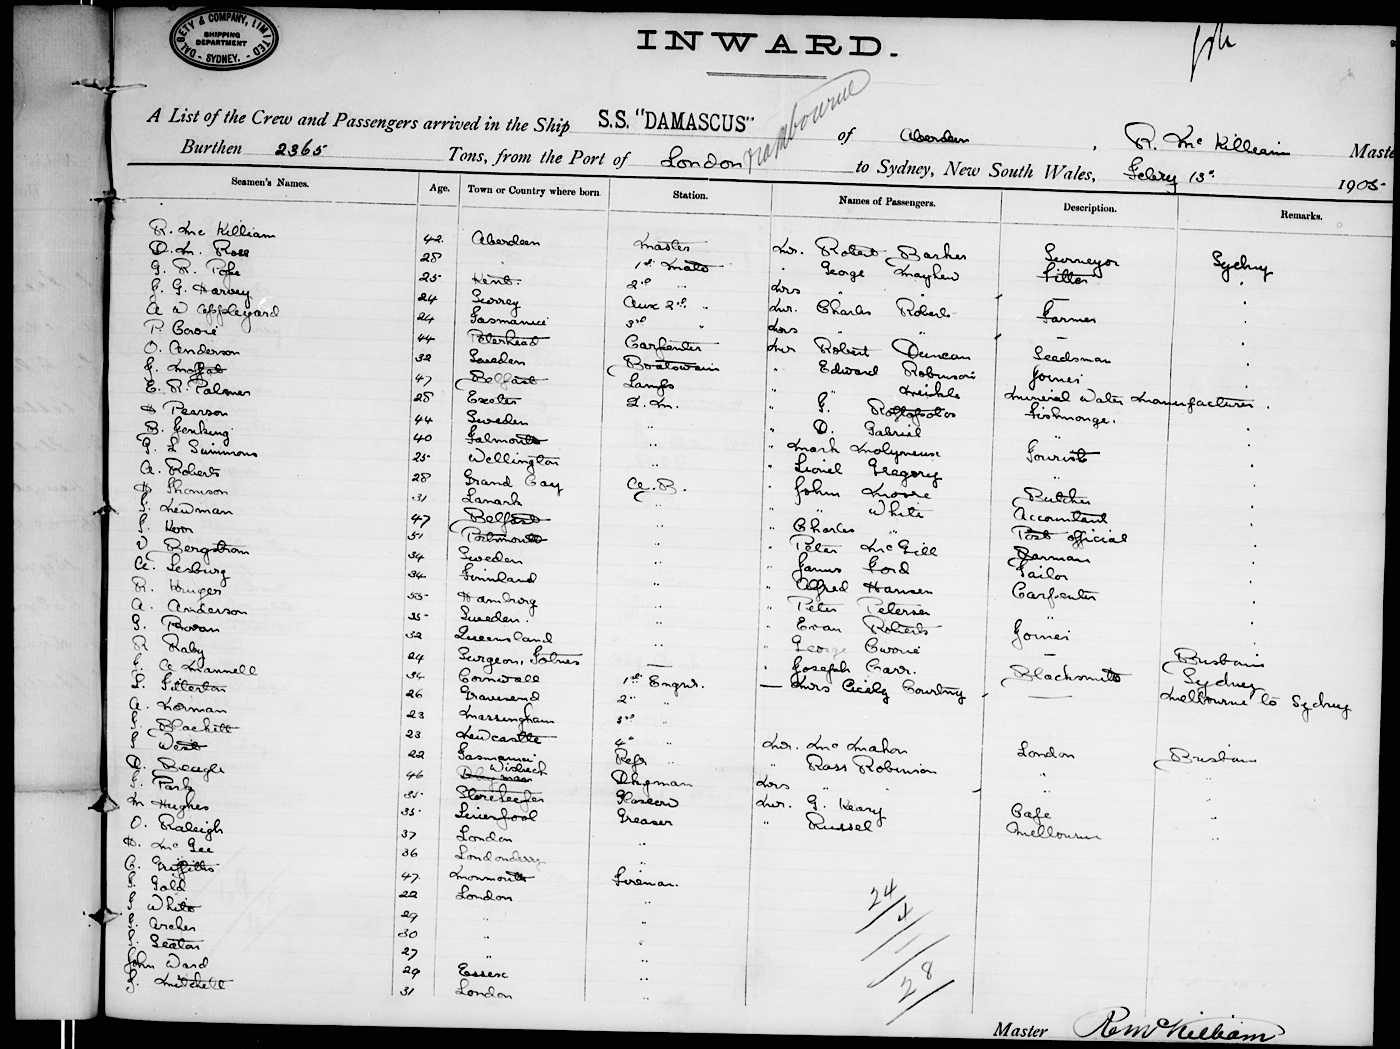 DALGETY & COMPANY, LIMITED
SHIPPING DEPARTMENT
SYDNEY.
INWARD.
A List of the Crew and Passengers arrived in the Ship S.S. "DAMASCUS" of Aberdeen, R. McKilliam Master
Burthen 2365 Tons, from the Port of London to Sydney, New South Wales, 13th 1905
Seamen's Names. Age. Town or Country where born Station. Names of Passengers. Description. Remarks.
R. McKilliam 42 Aberdeen Master Mr. Robert Barker Surveyor Sydney
D. M. Ross 28 " 1st Mate " George Mayhew Fitter "
G. R. Pope 25 Kent. 2nd " Mrs " " — "
G. Harvey 24 Surrey Aux 2nd " Mr. Charles Roberts Farmer "
A W Applegard 24 Tasmania 3rd " Mrs " " — "
P. Cowie 44 Peterhead Carpenter Mr Robert Duncan Seedsman "
O. Anderson 32 Sweden Boatswain " Edward Robinson Joiner "
J. Moffat 47 Belfast Lamps " Meikle Mineral Water Manufacturer "
E. R. Palmer 28 Exeter Q. M. " G. Fishmonger "
H Pearson 44 Sweden " " D. Gabriel " "
B. Jenkins 40 Falmouth " " Mark Molyneux Tourist "
G. L Simmons 25 Wellington " " Lionel Gregory " "
A. Roberts 28 Grand Cay A.B. " John Moore Butcher "
H Thomson 31 Lanark " " " White Accountant "
J. Newman 47 Belfast " " Charles " Post official "
J. Koon 51 Portmouth " " Peter McGill Carman "
W Bergstrom 34 Sweden " " James Ford Tailor "
A. Sesburg 34 Finnland " " Alfred Hansen Carpenter "
R. Kruger 55 Hamburg " " Peter Petersen " "
A. Anderson 35 Sweden. " " Evan Roberts Joiner "
J. Provan 52 Queensland " " George Cowie — Brisbane
R Raby 24 Surgeon, Totnes — " Joseph Carr. Blacksmith Sydney
A Mannell 34 Cornwall 1st Engnr. — Mrs Cicely Courtney — Melbourne to Sydney
J. Titterton 26 Gravesend 2nd "
A. Norman 23 Massingham 3rd "
Blackett 23 Newcastle 4th " Mr. McMahon London Brisbane
West 22 Tasmania Refr " " Ross Robinson " "
D. Beagle 46 Wisbech Dkyman Mrs " " " "
J. Park 35 Storekeeper Mr. G. Keary Cape "
M Hughes 35 Liverpool Greaser " Russel Melbourne "
O. Raleigh 37 London "
H. McGee 36 Londonderry "
C. Griffiths 47 Monmouth Fireman.
J. Gold 22 London "
White 29 " "
Archer 30 " "
J. Seaton 27 " "
John Ward 29 Essex "
J. Mitchell 31 London "
24
4
1
28
Master R McKilliam